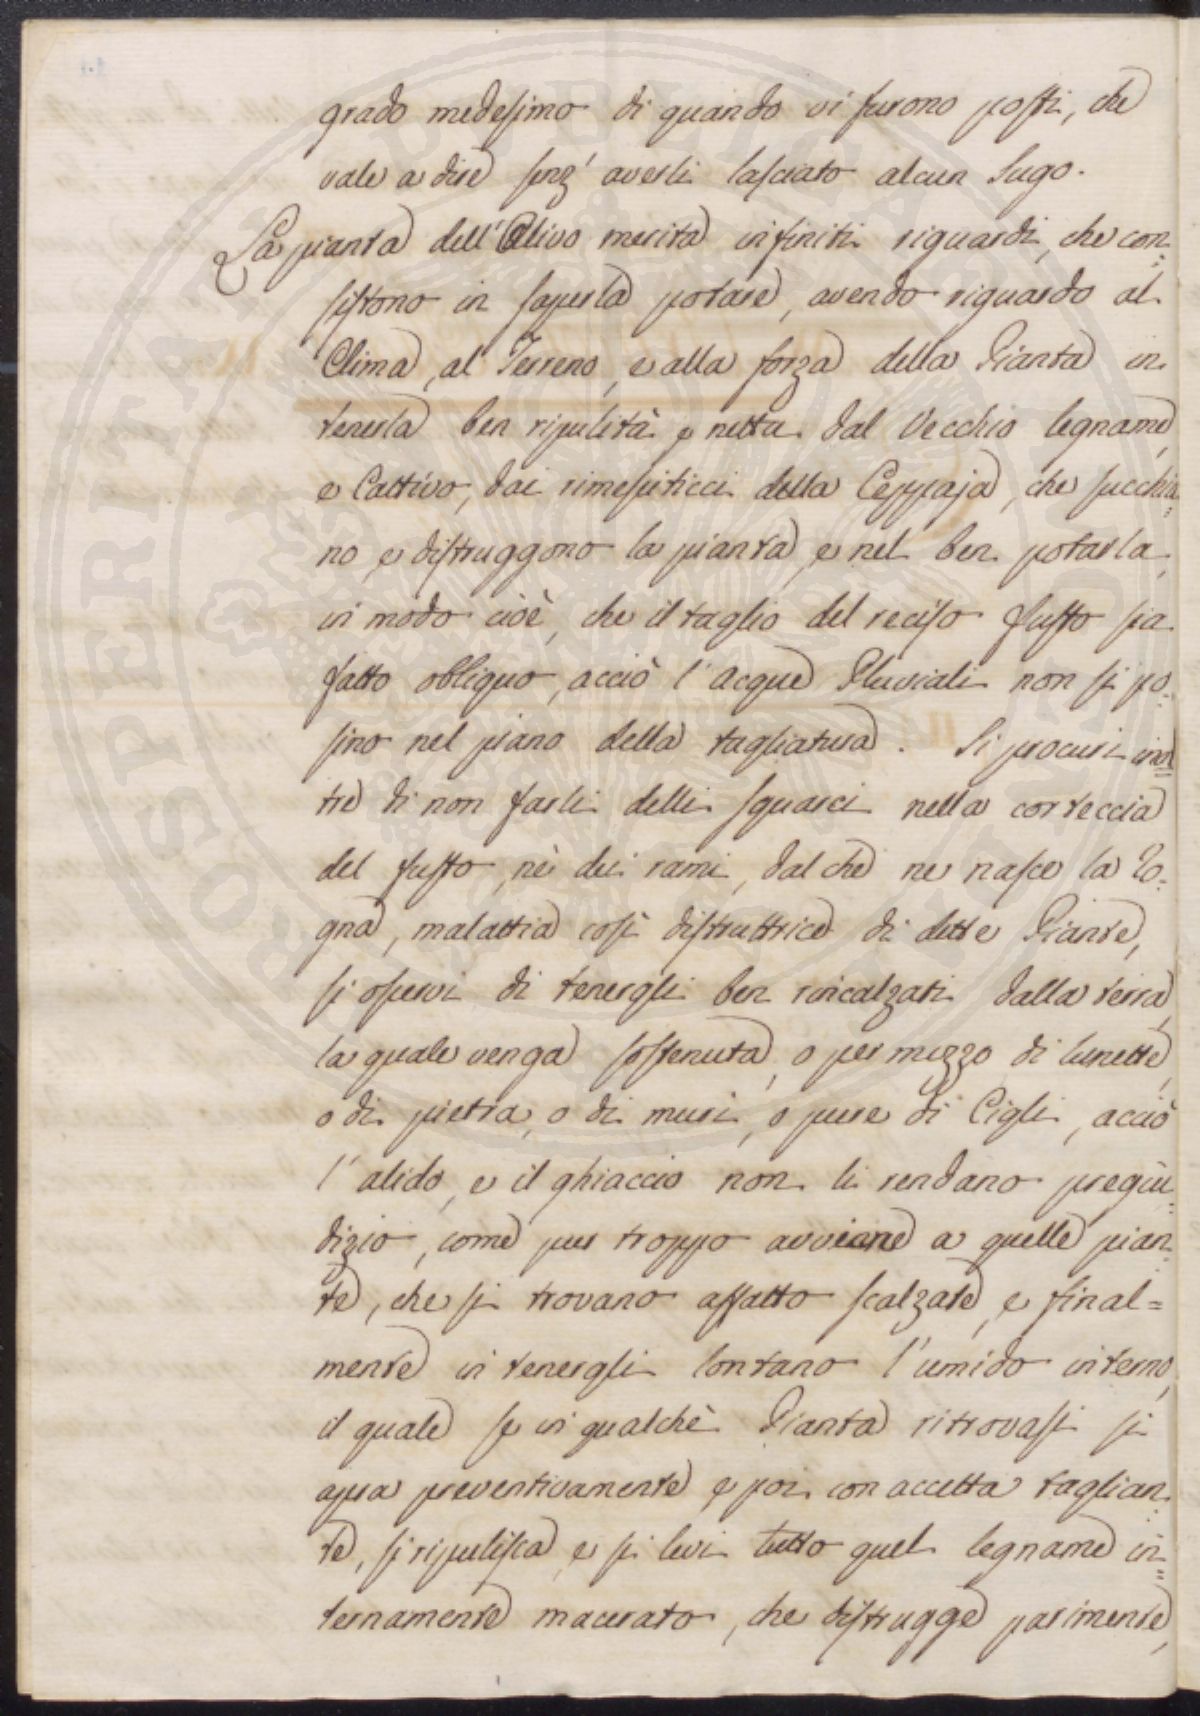 grado medesimo di quando vi furono posti, che
vale a dire senz' averli lasciato alcun sugo.
La pianta dell'Olivo merita infiniti riguardi, che con=
sistono in saperla potare, avendo riguardo al
Clima, al Terreno, e alla forza della Pianta in
tenerla ben ripulita e netta dal Vecchio legname,
e Cattivo, dai rimessiticci della Ceppaja, che succhia=
no e distruggono la pianta, e nel ben potarla,
in modo cioè, che il taglio del reciso fusto sia
fatto obliquo, acciò l'acque Pluviali non si po=
sino nel piano della tagliatura. Si procuri inol=
tre di non farli delli squarci nella corteccia
del fusto, nè dei rami, dal che ne nasce la Ro=
gna, malattia così distruttrice di dette Piante,
si osservi di tenergli ben rincalzati dalla terra,
la quale venga sostenuta, o per mezzo di lunette,
o di pietra, o di muri, o pure di Cigli, acciò
l'alido, e il ghiaccio non li rendano pregiu=
dizio, come pur troppo avviene a quelle pian=
te, che si trovano affatto scalzate, e final=
mente in tenergli lontano l'umido interno,
il quale se in qualche Pianta ritrovasi si
apra preventivamente e poi con accetta taglian=
te, si ripulisca, e si levi tutto quel legname in=
ternamente macerato, che distrugge parimente,
PROSPERITATI PUBLICAE AUGENDAE